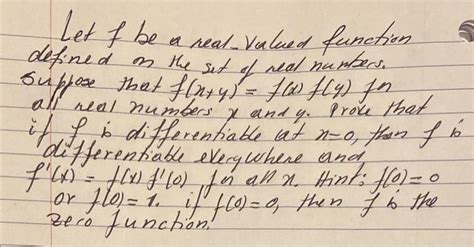 Let f be a real-valued function
defined on the set of real numbers.
Suppose that f(x+y) = f(x) f(y) for
all real numbers x and y. Prove that
if f is differentiable at x=0, then f is
differentiable everywhere and
f'(x) = f(x) f'(0) for all x. Hint: f(0)=0
or f(0)=1. if f(0)=0, then f is the
zero function.